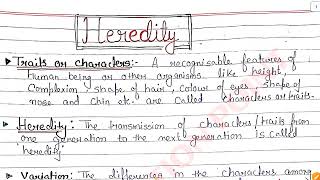 Heredity
Traits or characters:- A recognisable features of
human being or other organisms like height,
Complexion shape of hair, colour of eyes, shape of
nose and chin etc. are called characters or traits.
Heredity: The transmission of characters/traits from
one generation to the next generation is called
heredity.
Variation: The differences in the characters among